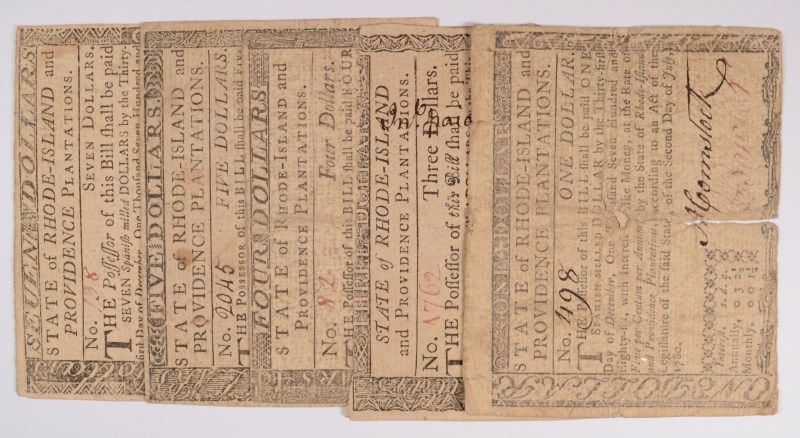 SEVEN DOLLARS
STATE of RHODE-ISLAND and
PROVIDENCE PLANTATIONS.
SEVEN DOLLARS.
No. 38
THE Possessor of this Bill shall be paid
SEVEN Spanish milled DOLLARS by the Thirty-
first Day of December, One Thousand Seven Hundred and
FIVE DOLLARS.
STATE of RHODE-ISLAND and
PROVIDENCE PLANTATIONS.
FIVE DOLLARS
No. 2045
THE POSSESSOR of this BILL shall be paid FIVE
FOUR DOLLARS
STATE of RHODE-ISLAND and
PROVIDENCE PLANTATIONS.
Four Dollars.
No.
THE Possessor of this BILL shall be paid FOUR
STATE of RHODE-ISLAND
and PROVIDENCE PLANTATIONS.
Three Dollars.
No. 1762
THE Possessor of this Bill shall be paid
STATE of RHODE-ISLAND and
PROVIDENCE PLANTATIONS.
ONE DOLLAR.
No. 498
THE Possessor of this BILL shall be paid ONE
SPANISH MILLED DOLLAR by the Thirty-first
Day of December, One Thousand Seven Hundred and
Eighty-six, with Interest, in like Money, at the Rate of
Five per Centum per Annum, by the State of Rhode-Island
and Providence Plantations, according to an Act of the
Legislature of the said State, of the Second Day of July,
1780.
Interest. s. d. q.
Annually,
Monthly,
A Comstock
ONE DOLLAR